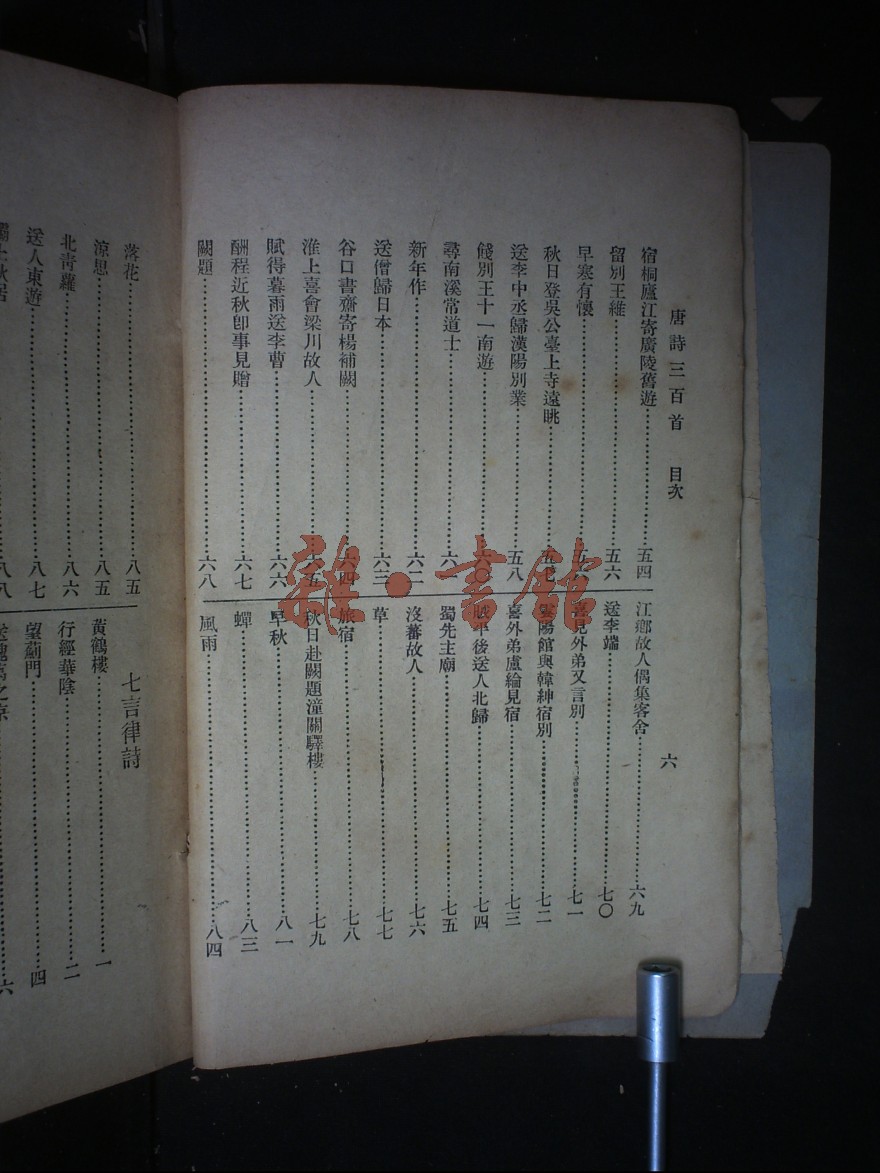 唐詩三百首　目次
六
宿桐廬江寄廣陵舊遊……五四
留別王維……五六
早寒有懷……五六
秋日登吳公臺上寺遠眺……五七
送李中丞歸漢陽別業……五八
餞別王十一南遊……六〇
尋南溪常道士……六一
新年作……六二
送僧歸日本……六三
谷口書齋寄楊補闕……六四
淮上喜會梁川故人……六五
賦得暮雨送李曹……六六
酬程近秋卽事見贈……六七
闕題……六八
江鄉故人偶集客舍……六九
送李端……七〇
喜見外弟又言別……七一
雲陽館與韓紳宿別……七二
喜外弟盧綸見宿……七三
賊平後送人北歸……七四
蜀先主廟……七五
沒蕃故人……七六
草……七七
旅宿……七八
秋日赴闕題潼關驛樓……七九
早秋……八一
蟬……八三
風雨……八四
落花……八五
涼思……八五
北青蘿……八六
送人東遊……八七
灞上秋居……八八
七言律詩
黃鶴樓……一
行經華陰……二
望薊門……四
送魏萬之京……六
雜·書館